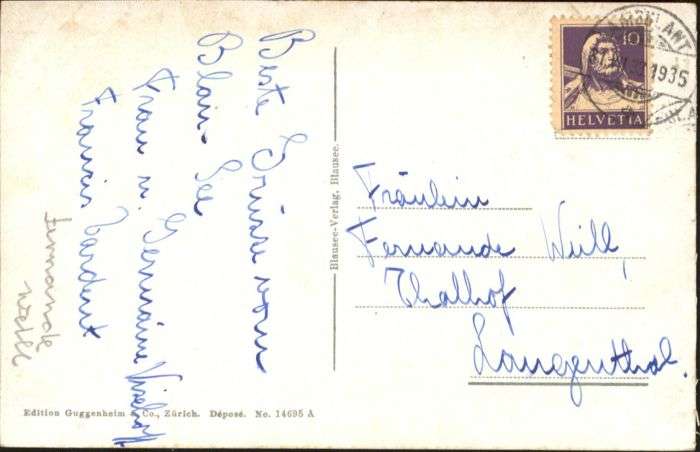 Beste Grüsse vom
Blau-See
Frau u. Germaine
Francis Tardent
Fernande
Weill
Edition Guggenheim & Co., Zürich. Déposé. No. 14695 A
Blausee-Verlag, Blausee.
10
HELVETIA
1935
Fräulein
Fernande Weill,
Thalhof
Langenthal.